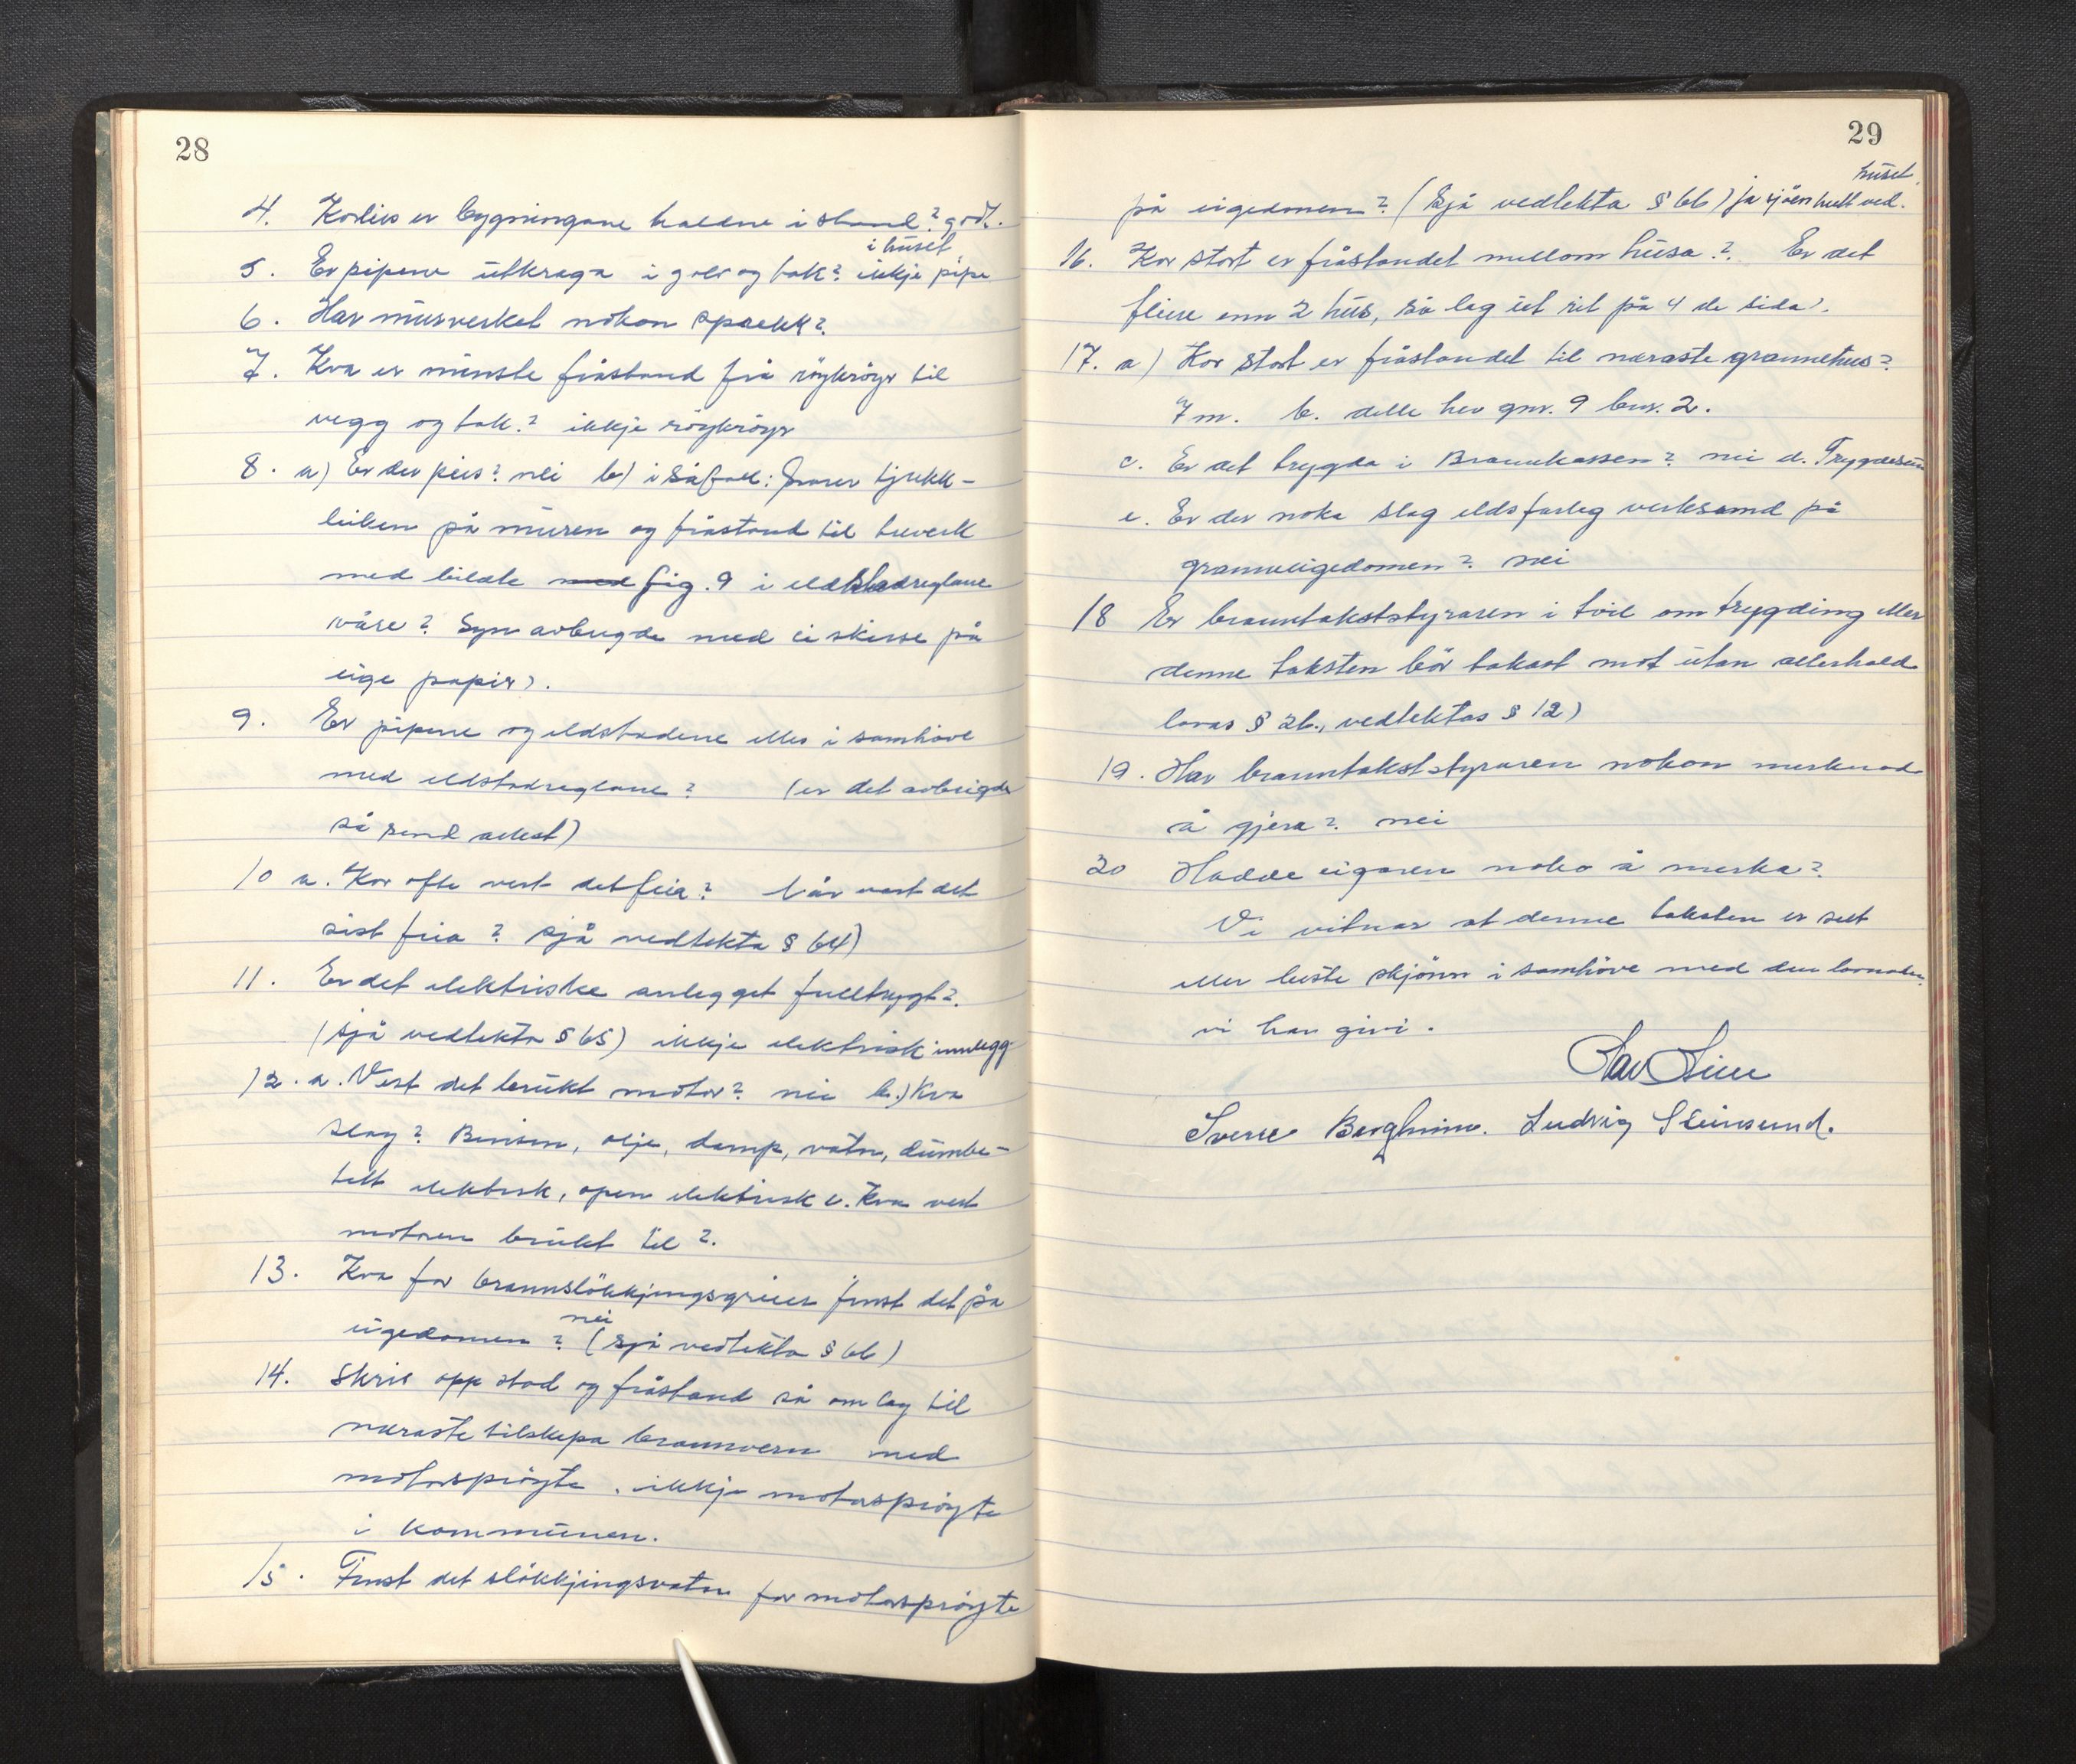 28
4. Korleis er bygningane haldne i stand? godt.
i huset
5. Er pipene utkraga i golv og tak? ikkje pipe
6. Har murverket nokon sprekk?
7. Kva er minste fråstand frå röykröyr til
vegg og tak? ikkje röykröyr
8. a) Er der peis? nei b) i såfall: svarer tjukk-
leiken på muren og fråstand til treverk
med bildte med fig. 9 i eldstadreglane
våre? Syn avbrigde med ei skisse på
eige papir).
9. Er pipene og eldstadene elles i samhöve
med eldstadreglane? (er det avbrigde
så send attest)
10 a. Kor ofte vert det feia? Når vart det
sist feia? sjå vedtekta § 64)
11. Er det elektriske anlegget fulltrygt?
(sjå vedtekta § 65) ikkje elektrisk innlegg
12. a. Vert det brukt motor? nei b.) Kva
slag? Bensin, olje, damp, vatn, etter-
tett elektrisk, open elektrisk c. Kva vert
motoren brukt til?
13. Kva for brannslökkjingsgreier finst det på
nei
eigedomen? (sjå vedtekta § 66)
14. Skriv opp stad og fråstand så om lag til
næraste tilskipa brannvern med
motorspröyte. ikkje motorspröyte
i kommunen.
15. Finst det slökkjingsvatn for motorspröyte
29
huset.
på eigedomen? (Sjå vedtekta § 66) ja sjöen tett ved.
16. Kor stort er fråstandet mellom husa? Er det
fleire enn 2 hus, så lag eit rit på 4 de sida).
17. a) Kor stort er fråstandet til næraste grannehus?
7 m. b. dette hev gnr. 9 bnr. 2.
c. Er det trygda i Brannkassen? nei d. Trygdesum
e. Er der noka slag eldsfarleg verksemd på
granneeigedomen? nei
18 Er branntakststyraren i tvil om trygding eller
denne taksten bör takast mot utan atterhald
lovas § 26., vedtektas § 12)
19. Har branntakststyraren nokon merknad
å gjera? nei
20 Hadde eigaren noko å merka?
Vi vitnar at denne taksten er sett
etter beste skjönn i samhöve med den lovnaden
vi har givi.
Sverre Bergheim. Ludvig Steinsund.